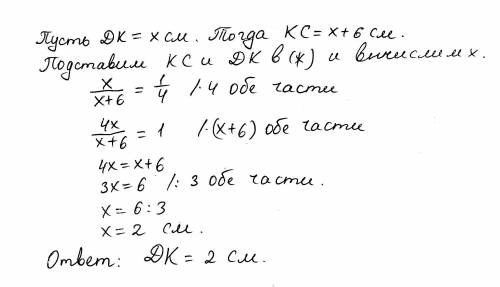 Пусть ДК = x см. Тогда КС = x + 6 см.
Подставим КС и ДК в (*) и вычислим x.
x/(x+6) = 1/4 /·4 обе части
4x/(x+6) = 1 /·(x+6) обе части
4x = x+6
3x = 6 /: 3 обе части.
x = 6 : 3
x = 2 см.
Ответ: ДК = 2 см.